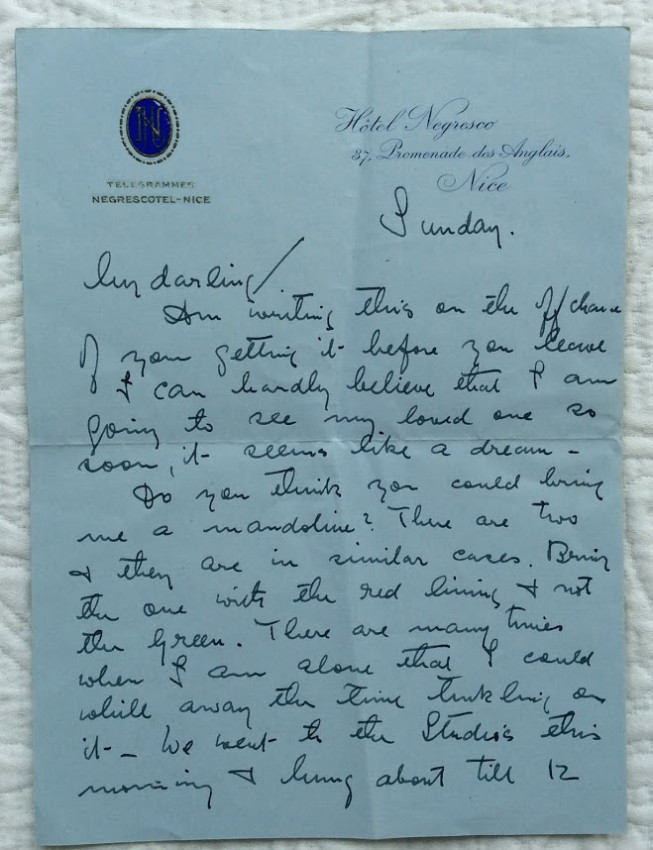 HN
TELEGRAMMES
NEGRESCOTEL-NICE
Hôtel Negresco
37, Promenade des Anglais,
Nice
Sunday.
My darling/
Am writing this on the off/chance
of you getting it before you leave
I can hardly believe that I am
going to see my loved one so
soon, it seems like a dream -
Do you think you could bring
me a mandoline? There are two
& they are in similar cases. Bring
the one with the red lining & not
the Green. There are many times
when I am alone that I could
while away the time tinkling on
it - We went to the Studios this
morning & hung about till 12